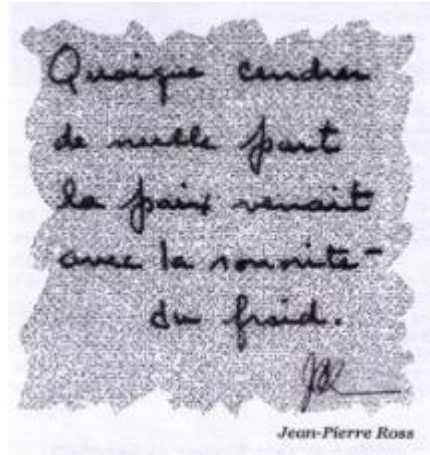 Quoique cendres
de nulle part
la paix venait
avec la sonorité
du froid.
Jean-Pierre Ross